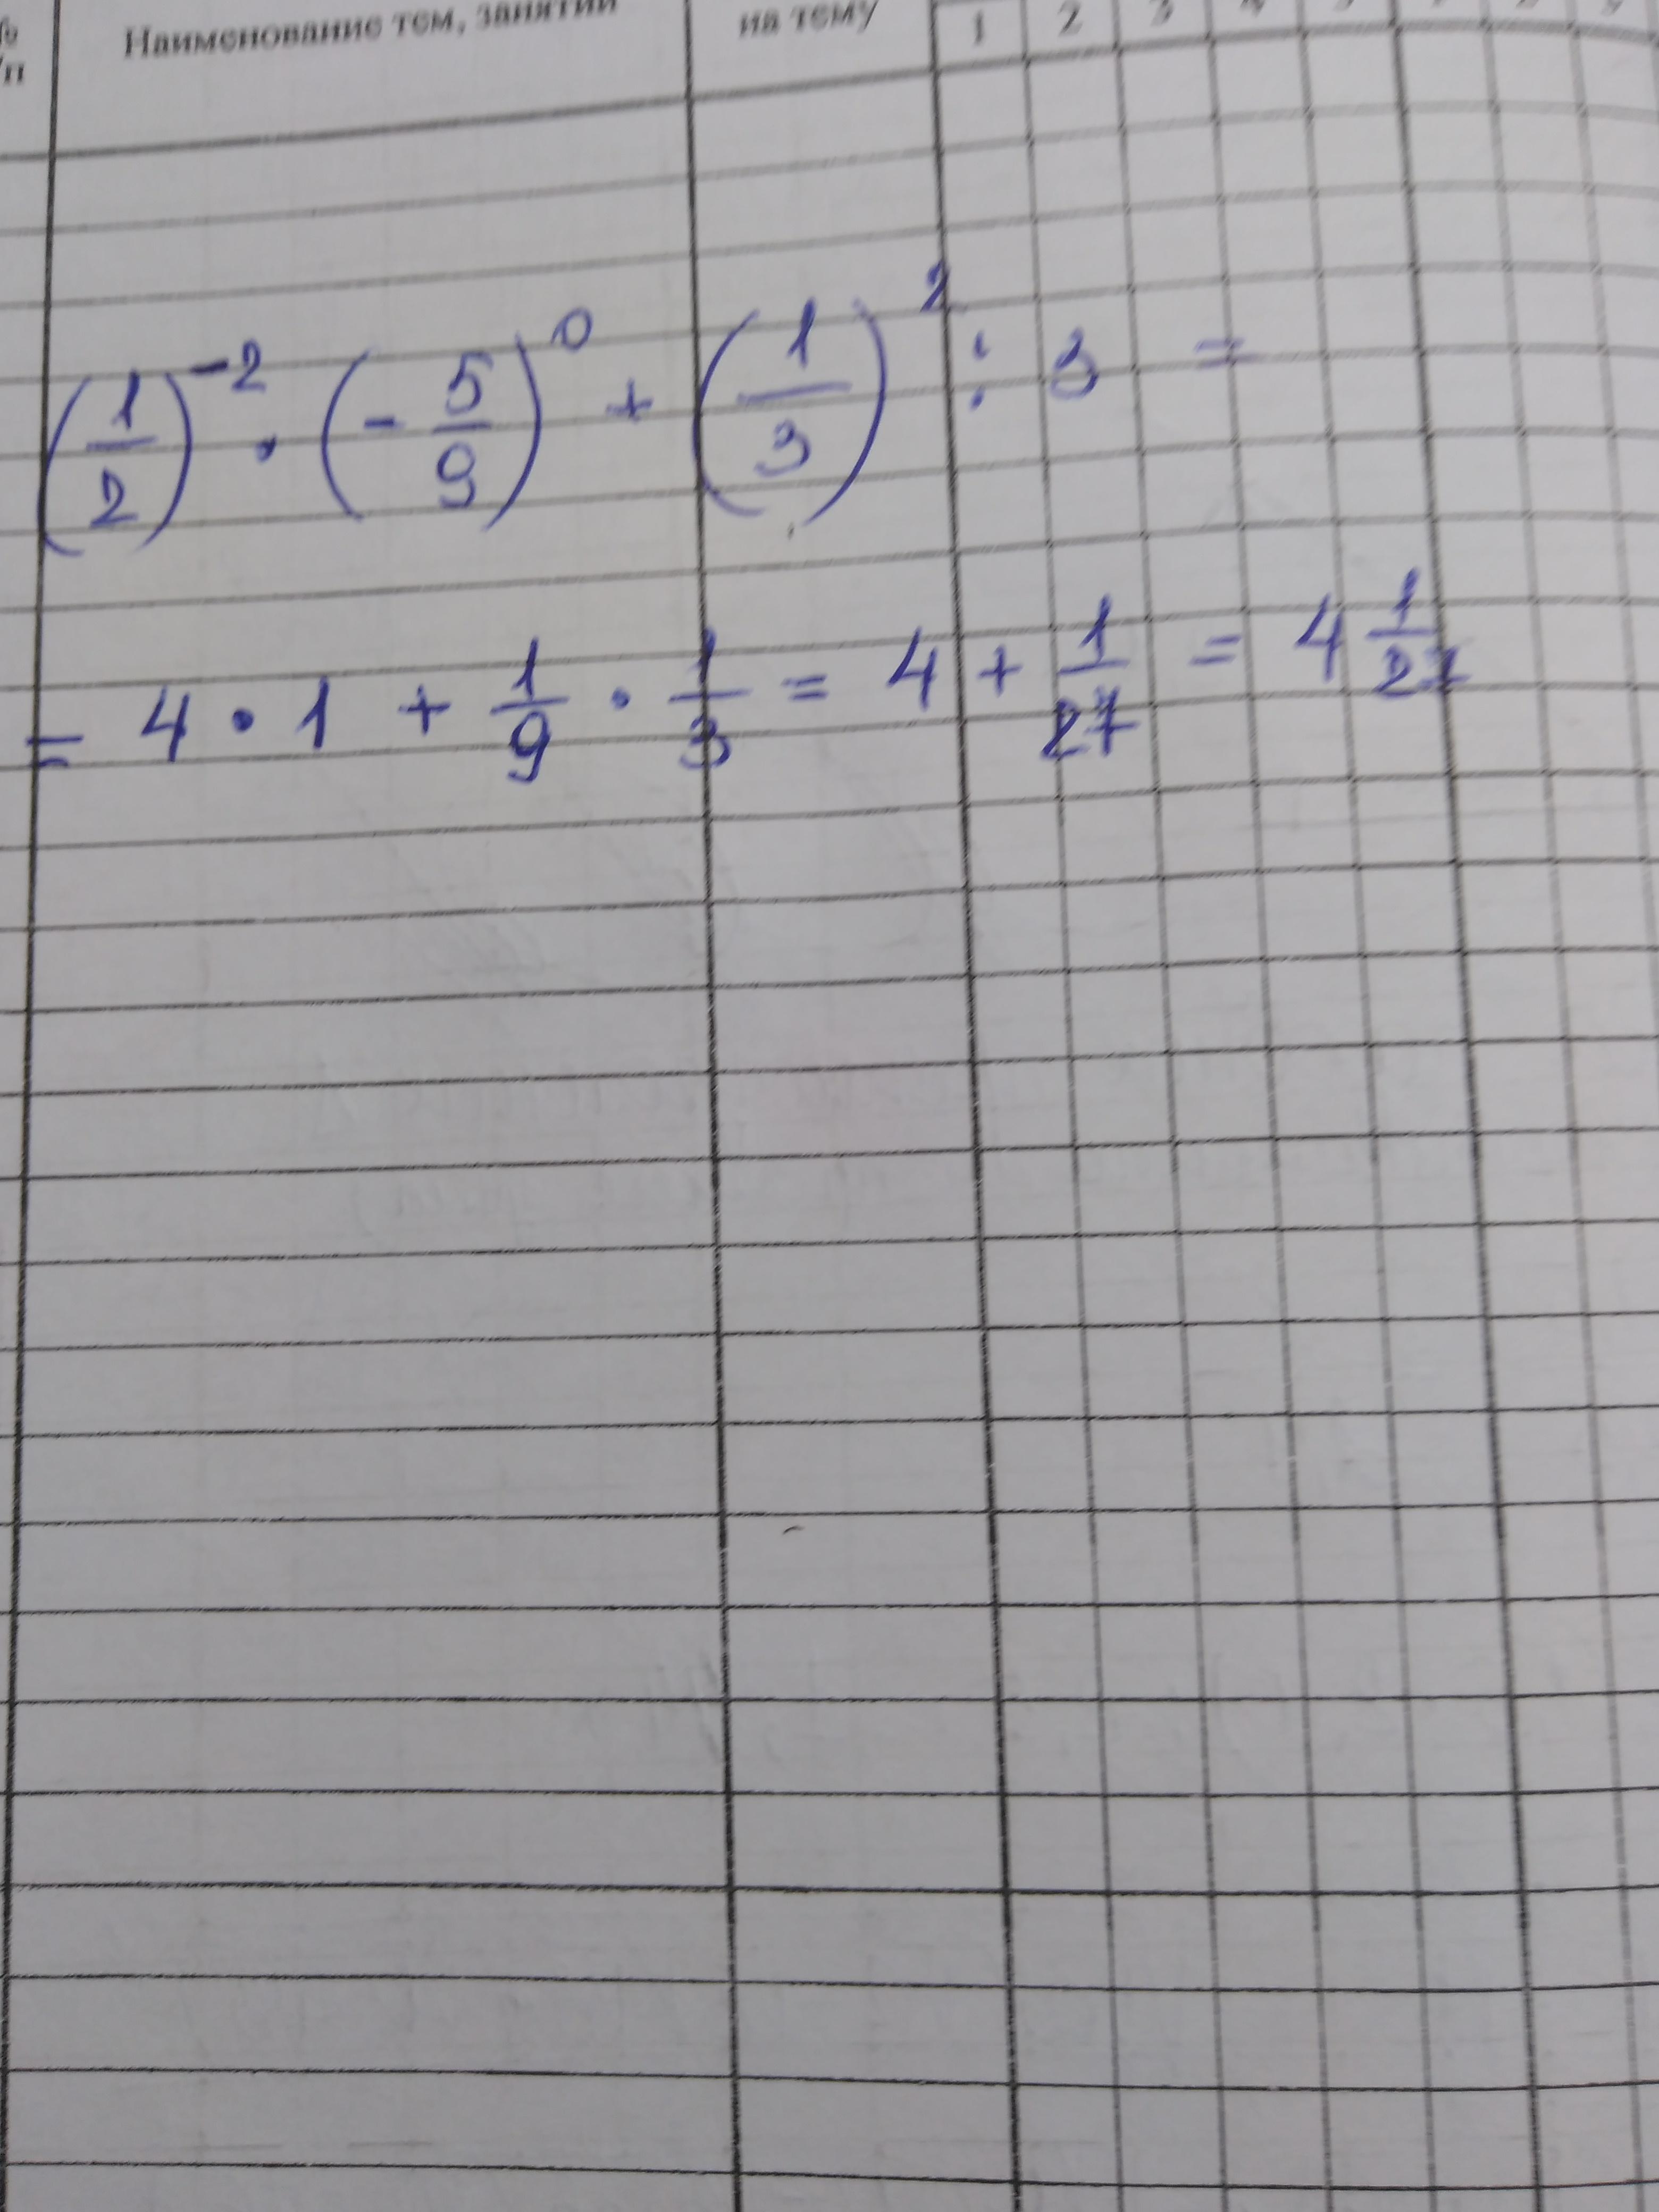 п/п Наименование тем, занятий на тему 1 2 3 4 5
(1/2)^-2 · (-5/9)^0 + (1/3)^2 : 3 =
= 4 · 1 + 1/9 · 1/3 = 4 + 1/27 = 4 1/27